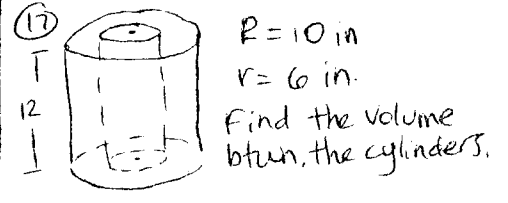 17
R = 10 in
r = 6 in.
12
Find the volume
btwn. the cylinders.